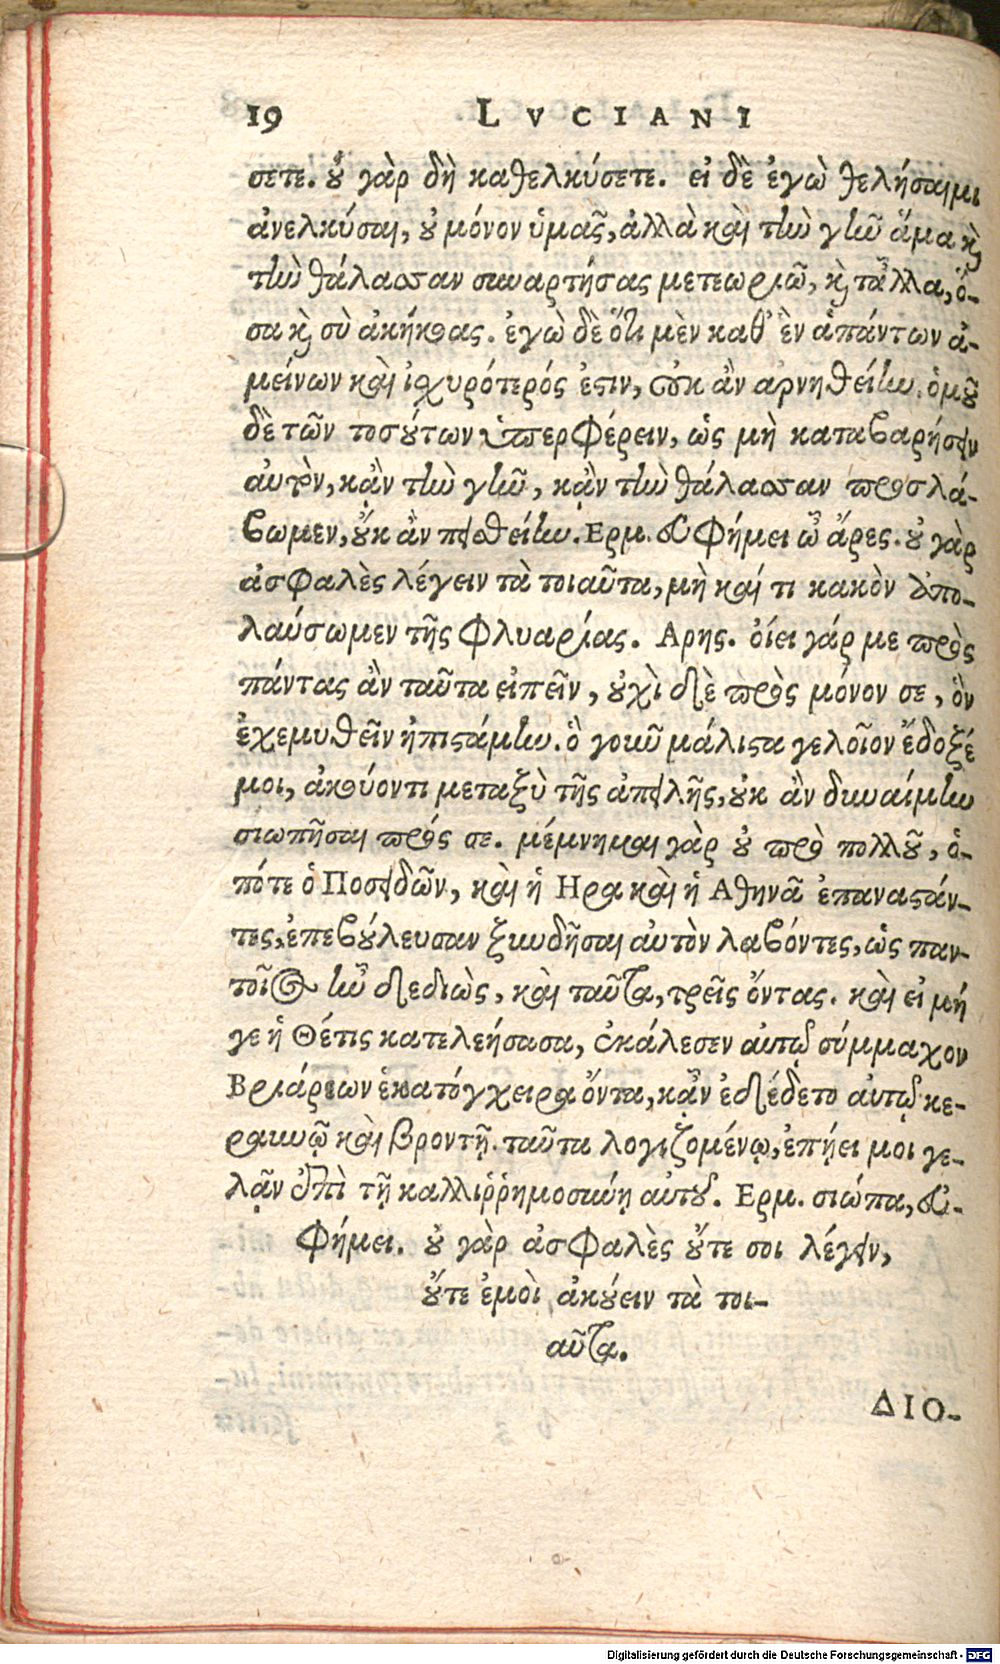 19 LVCIANI
σετε. οὐ γὰρ δὴ καθελκύσετε. εἰ δὲ ἐγὼ θελήσαιμι
ἀνελκύσαι, οὐ μόνον ὑμᾶς, ἀλλὰ καὶ τὴν γῆν ἅμα κ̀
τὴν θάλασσαν συναρτήσας μετεωριῶ, κ̀ τἆλλα, ὅ-
σα κ̀ σὺ ἀκήκοας. ἐγὼ δὲ ὅτι μὲν καθ' ἓν ἁπάντων ἀ-
μείνων καὶ ἰσχυρότερός ἐστιν, οὐκ ἂν ἀρνηθείην. ὁμοῦ
δὲ τῶν τοσούτων ὑπερφέρειν, ὡς μὴ καταβαρήσειν
αὐτὸν, κᾂν τὴν γῆν, κᾂν τὴν θάλασσαν προσλά-
βωμεν, οὔκ ἂν πεισθείην. Ερμ. εὐφήμει ὦ ἄρες. οὐ γὰρ
ἀσφαλὲς λέγειν τὰ τοιαῦτα, μὴ καί τι κακὸν ἀπο-
λαύσωμεν τῆς φλυαρίας. Αρης. οἴει γάρ με πρὸς
πάντας ἂν ταῦτα εἰπεῖν, οὐχὶ δὲ πρὸς μόνον σε, ὃν
ἐχεμυθεῖν ἠπιστάμην. ὃ γοιοῦ μάλιστα γελοῖον ἔδοξέ
μοι, ἀκούοντι μεταξὺ τῆς ἀπειλῆς, οὐκ ἂν δυναίμην
σιωπῆσαι πρός σε. μέμνημαι γὰρ οὐ πρὸ πολλοῦ, ὁ-
πότε ὁ Ποσειδῶν, καὶ ἡ Ηρα καὶ ἡ Αθηνᾶ ἐπαναστάν-
τες, ἐπεβούλευσαν ξυνδῆσαι αὐτὸν λαβόντες, ὡς παν-
τοῖος ἦν δεδιὼς, καὶ ταῦτα, τρεῖς ὄντας. καὶ εἰ μή
γε ἡ Θέτις κατελεήσασα, ἐκάλεσεν αὐτῷ σύμμαχον
Βριάρεων ἑκατόγχειρα ὄντα, κᾂν ἐδέδετο αὐτῷ κε-
ραυνῷ καὶ βροντῇ. ταῦτα λογιζομένῳ, ἐπῄει μοι γε-
λᾷν ἐπὶ τῇ καλλιῤῥημοσύνῃ αὐτοῦ. Ερμ. σιώπα, εὐ-
φήμει. οὐ γὰρ ἀσφαλὲς οὔτε σοι λέγειν,
οὔτε ἐμοὶ ἀκούειν τὰ τοι-
αῦτα.
ΔΙΟ-
Digitalisierung gefördert durch die Deutsche Forschungsgemeinschaft - DFG